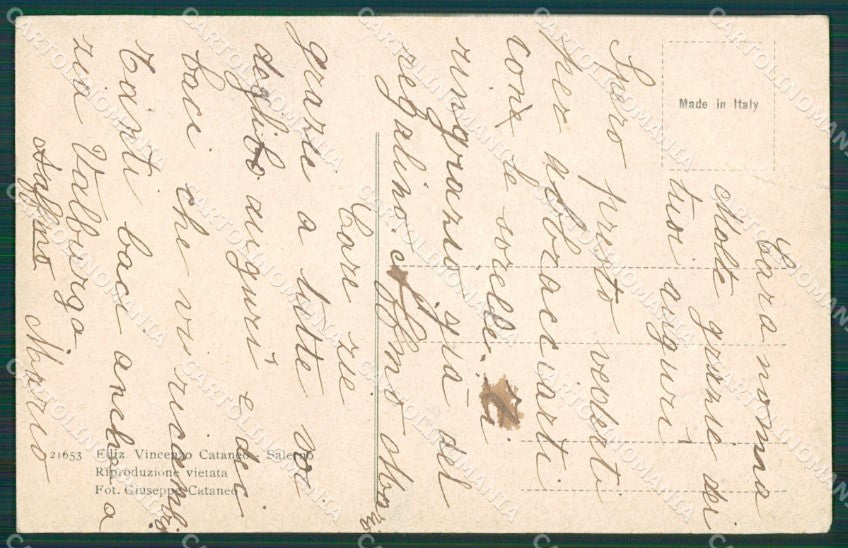 Cara nonna
Molte grazie dei
tuoi auguri
Spero presto vederti
per riabbracciarti
con le sorelle. Ti
ringrazio già del
regalino. Affmo Mario
Care zie
grazie a tutte voi
degli auguri e dei
baci che vi ricambio
Tanti baci anche a
zia Valburga
Affmo Mario
Made in Italy
21653 Ediz. Vincenzo Cataneo - Salerno
Riproduzione vietata
Fot. Giuseppe Cataneo
CARTOLINOMANIA